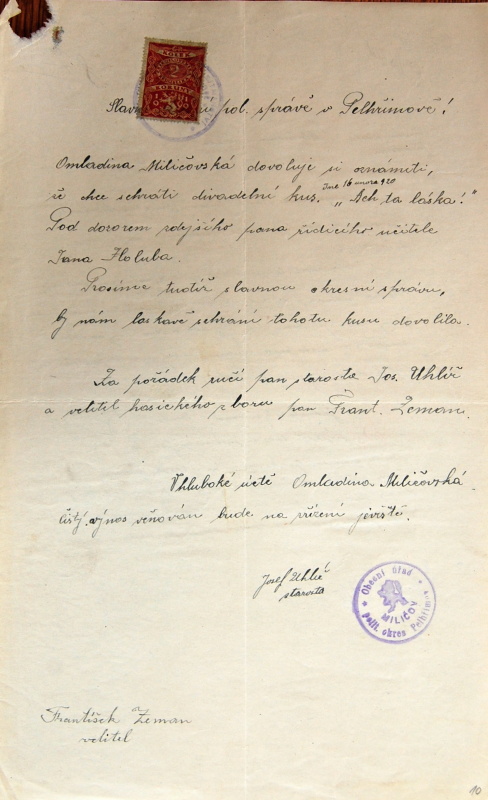 KOLEK
2
KORUNY
Slav pol. správě v Pelhřimově!
Omladina Miličovská dovoluje si oznámiti,
dne 16 února 920
že chce sehráti divadelní kus. "Ach ta láska!"
Pod dozorem zdejšího pana řídícího učitele
Jana Holuba.
Prosíme tudíž slavnou okresní správu,
by nám laskavě sehrání tohotu kusu dovolila.
Za pořádek ručí pan starosta Jos. Uhlíř
a velitel hasického sboru pan Frant. Zeman.
V hluboké úctě Omladina Miličovská.
čistý výnos věňován bude na zřízení jeviště.
Josef Uhlíř
starosta
Obecní úřad
MILIČOV
polit. okres Pelhřimov
František Zeman
velitel
10